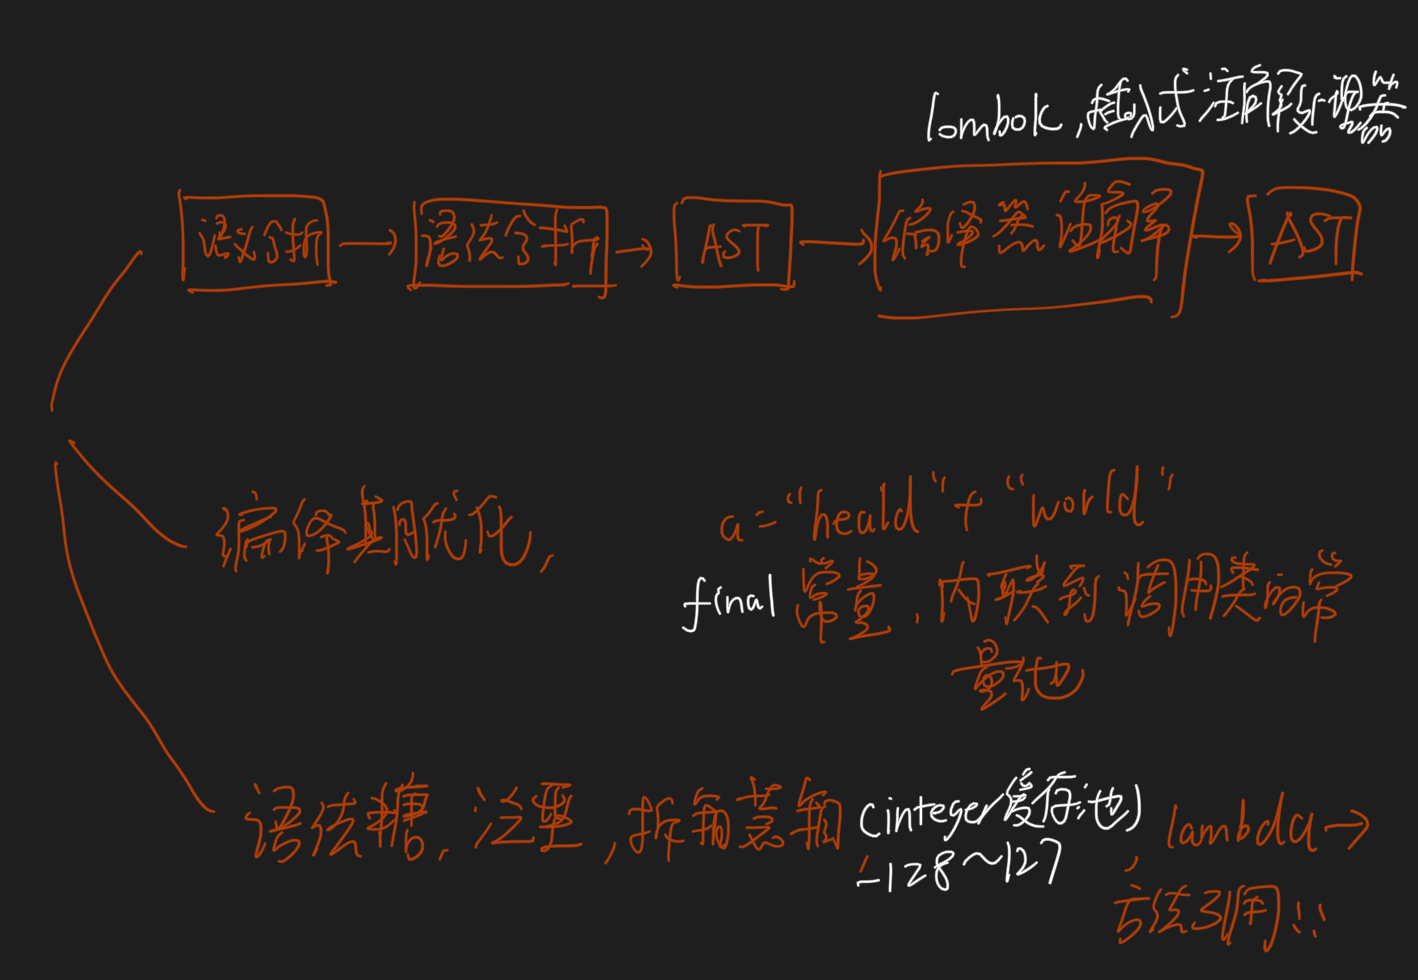 lombok,插入式注解处理器
语义分析 → 语法分析 → AST → 编译器注解 → AST
编译期优化,
a="heald"+"world"
final 常量,内联到调用类的常
量池
语法糖,泛型,拆箱装箱(integer缓存池),lambda→
-128~127
方法引用!!